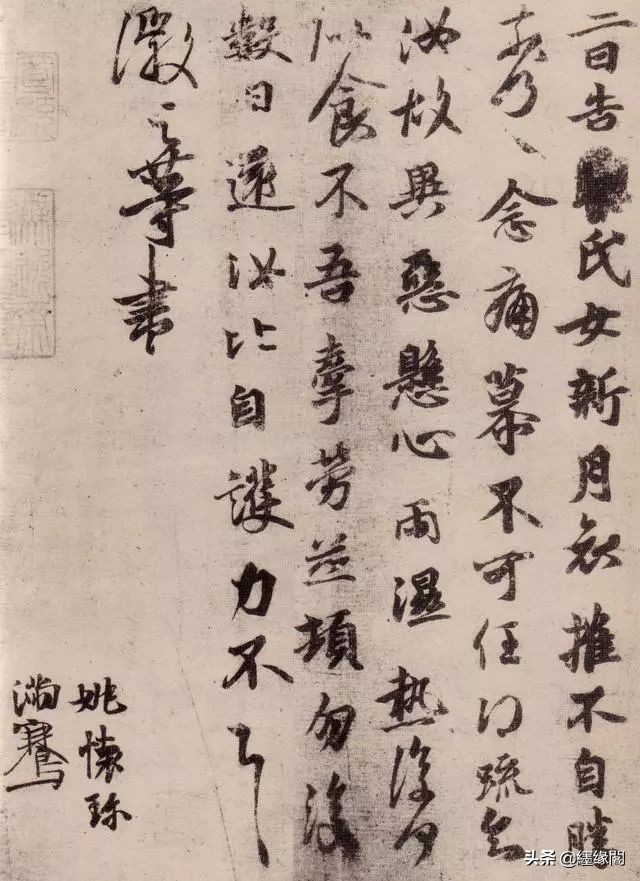 二日告氏女新月哀摧不自勝
奈何〻念痛慕不可任得疏知
汝故異惡懸心雨濕熱復何
似食不吾牽勞並頓勿復
數日還汝比自護力不具
徽之等書
姚懷珍
滿騫
头条 @纆缘閣